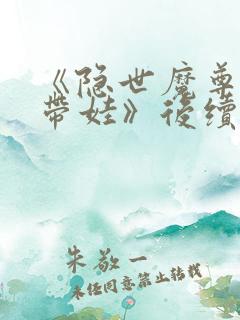 《隐世魔尊
带娃》后续
朱敬一
未经同意禁止转载